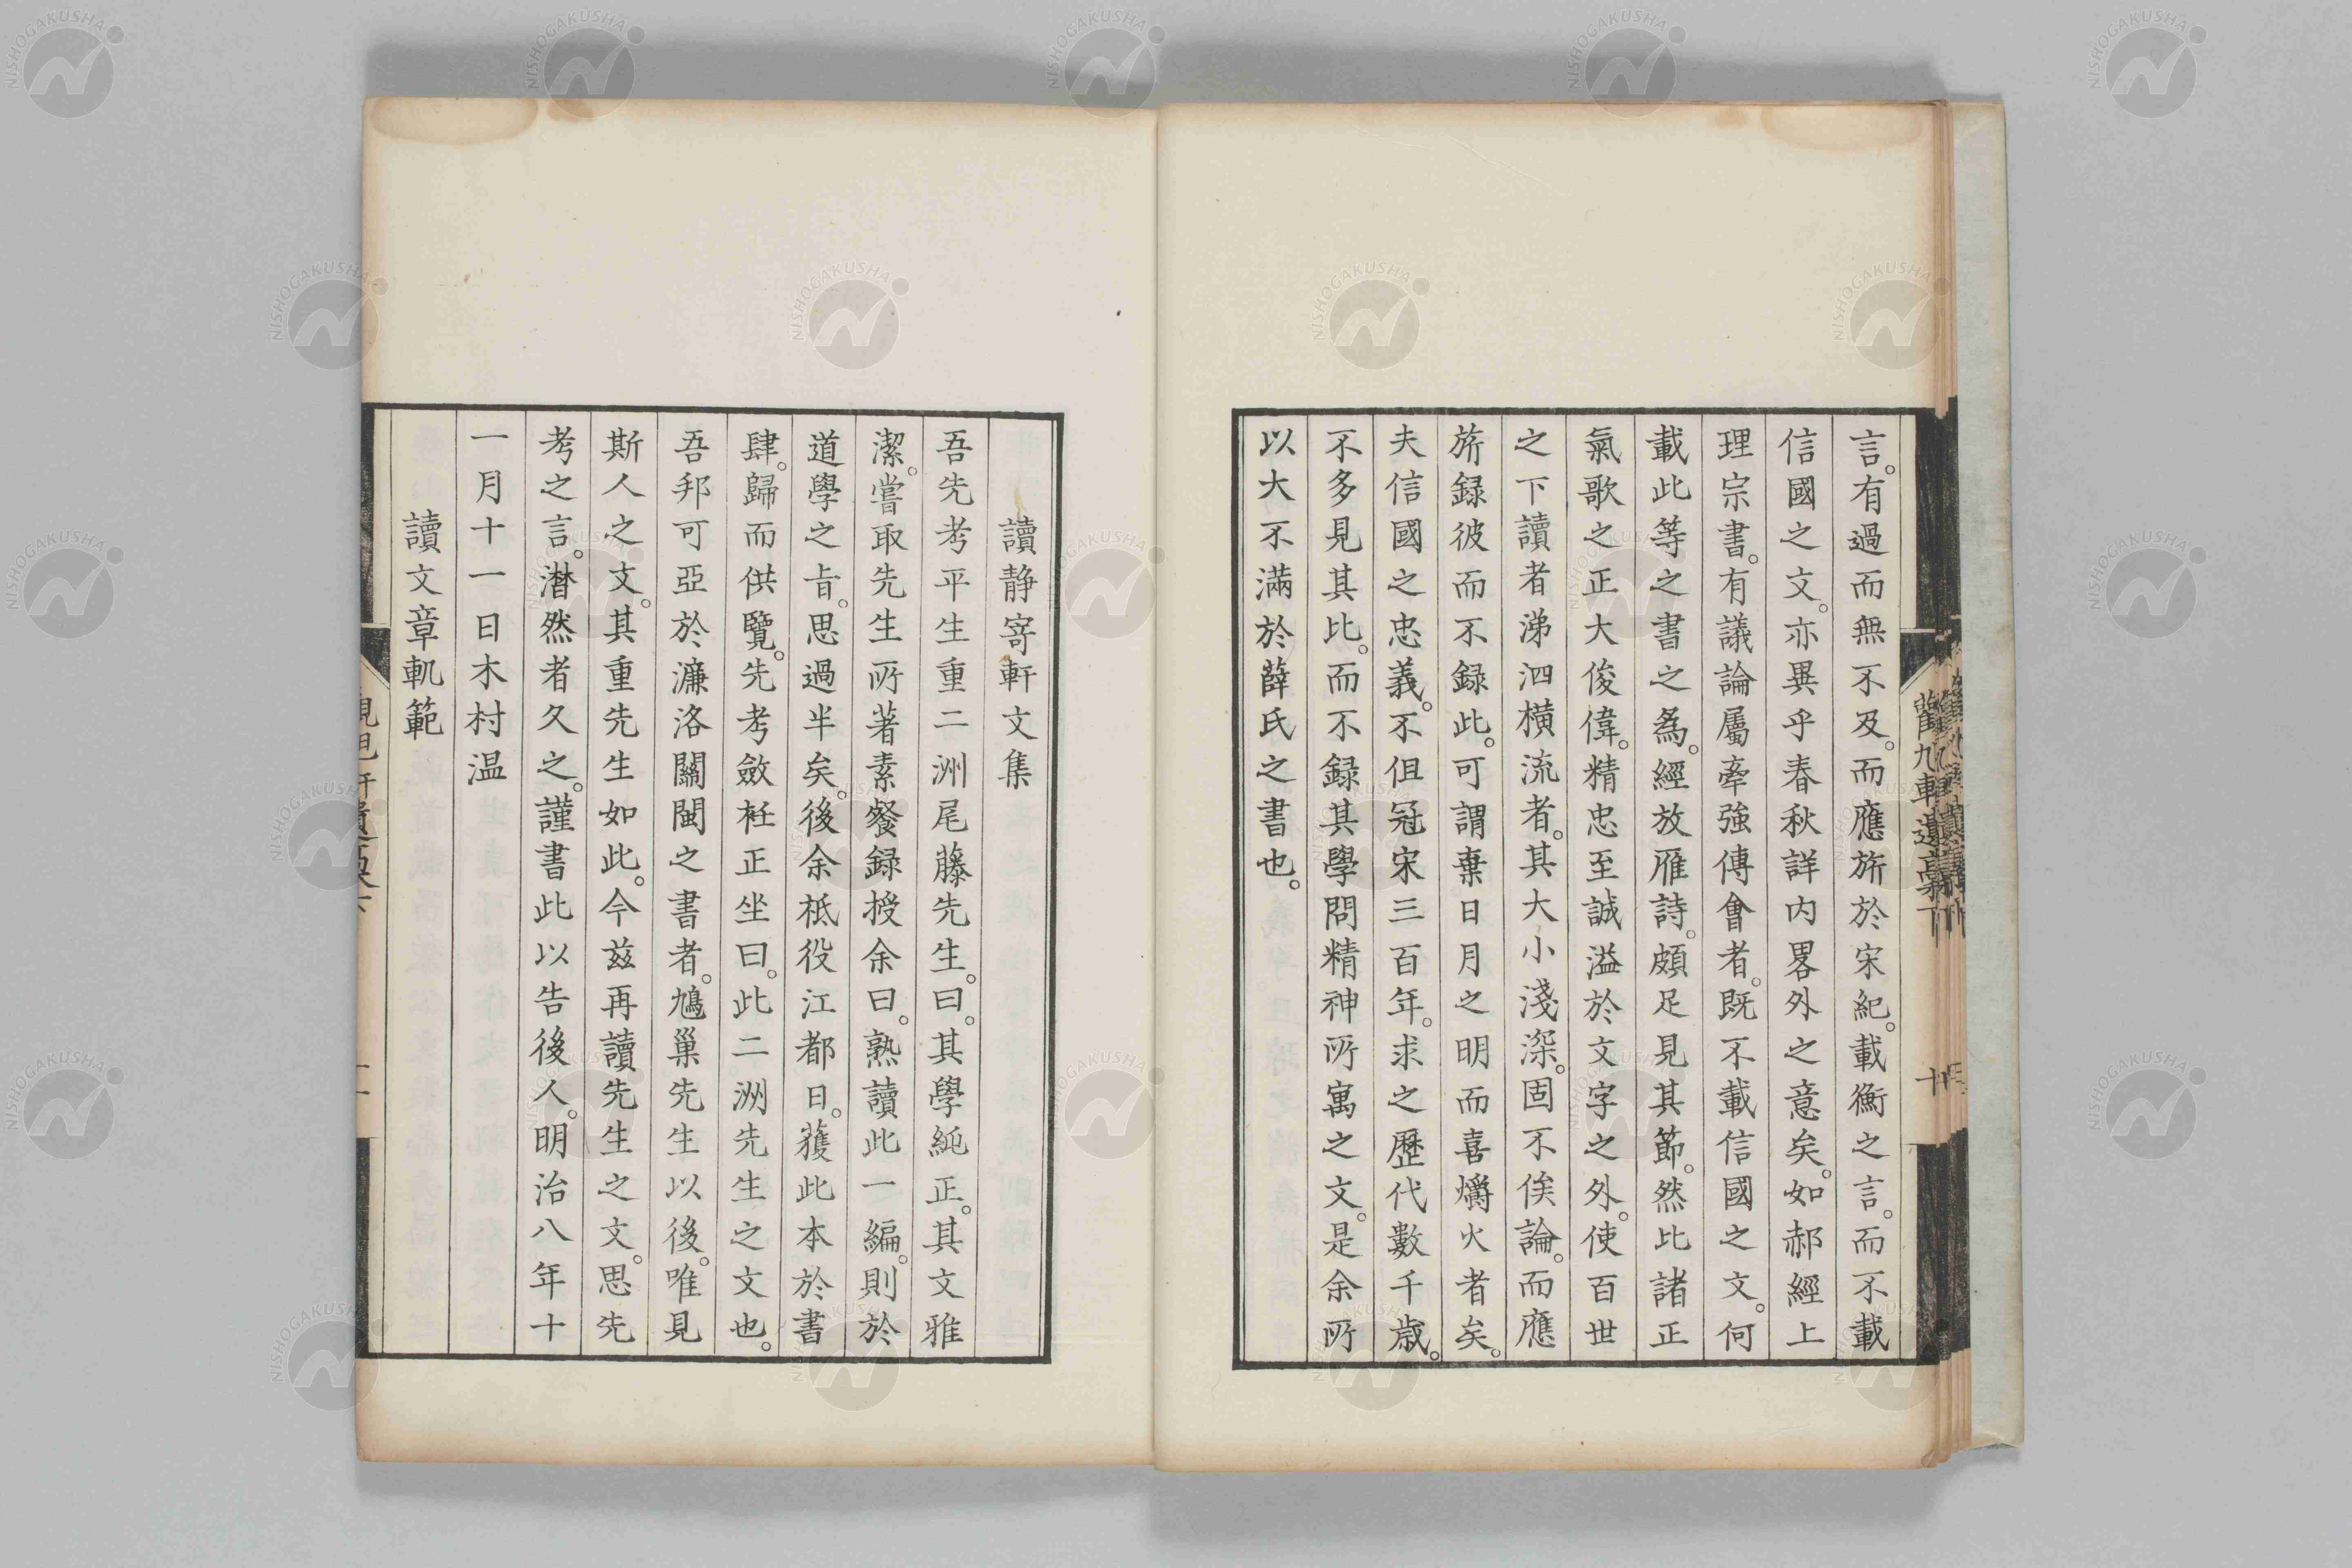 言。有過而無不及。而應旂於宋紀。載衡之言。而不載
信國之文。亦異乎春秋詳内畧外之意矣。如郝經上
理宗書。有議論屬牽強傳會者。既不載信國之文。何
載此等之書之為。經放雁詩。頗足見其節。然比諸正
氣歌之正大俊偉。精忠至誠溢於文字之外。使百世
之下讀者涕泗橫流者。其大小淺深。固不俟論。而應
旂録彼而不録此。可謂棄日月之明而喜爝火者矣。
夫信國之忠義。不但冠宋三百年。求之歷代數千歳。
不多見其比。而不録其學問精神所寓之文。是余所
以大不滿於薛氏之書也。
讀静寄軒文集
吾先考平生重二洲尾藤先生。曰。其學純正。其文雅
潔。嘗取先生所著素餐録授余曰。熟讀此一編。則於
道學之旨。思過半矣。後余祗役江都日。獲此本於書
肆。歸而供覽。先考斂衽正坐曰。此二洲先生之文也。
吾邦可亞於濂洛關閩之書者。鳩巢先生以後。唯見
斯人之文。其重先生如此。今茲再讀先生之文。思先
考之言。潸然者久之。謹書此以告後人。明治八年十
一月十一日木村温
讀文章軌範
NISHOGAKUSHA